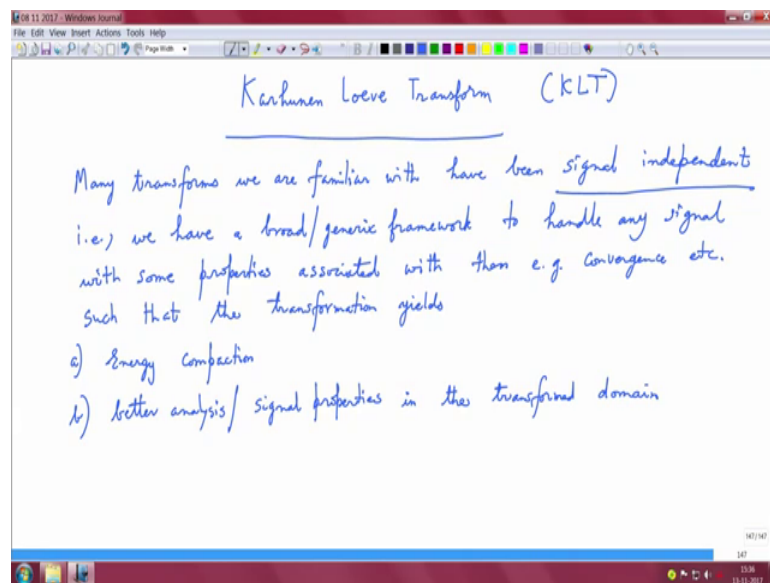 08 11 2017 - Windows Journal
File Edit View Insert Actions Tools Help
Page Width
Karhunen Loeve Transform (KLT)
Many transforms we are familiar with have been signal independent
i.e., we have a broad/generic framework to handle any signal
with some properties associated with them e.g. convergence etc.
such that the transformation yields
a) Energy compaction
b) better analysis/ signal properties in the transformed domain
147/147
147
15:36
13-11-2017